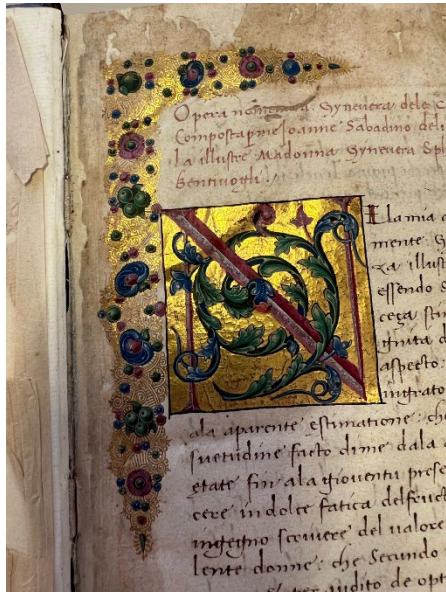 Opera nominata Gynevera dele C
Composta p me Joanne Sabadino deli
la illustre Madonna Gynevera Sph
Bentivogli.
N Ela mia
mente G
za illust
essendo
ceza
gnita d
aspecto:
ingrato
ala aparente estimatione: che
suetudine facto dime dala
etate fin ala gioventu prese
cere in dolce fatica del
ingegno scrivere del valore
lente donne: che Secondo
udito de opt